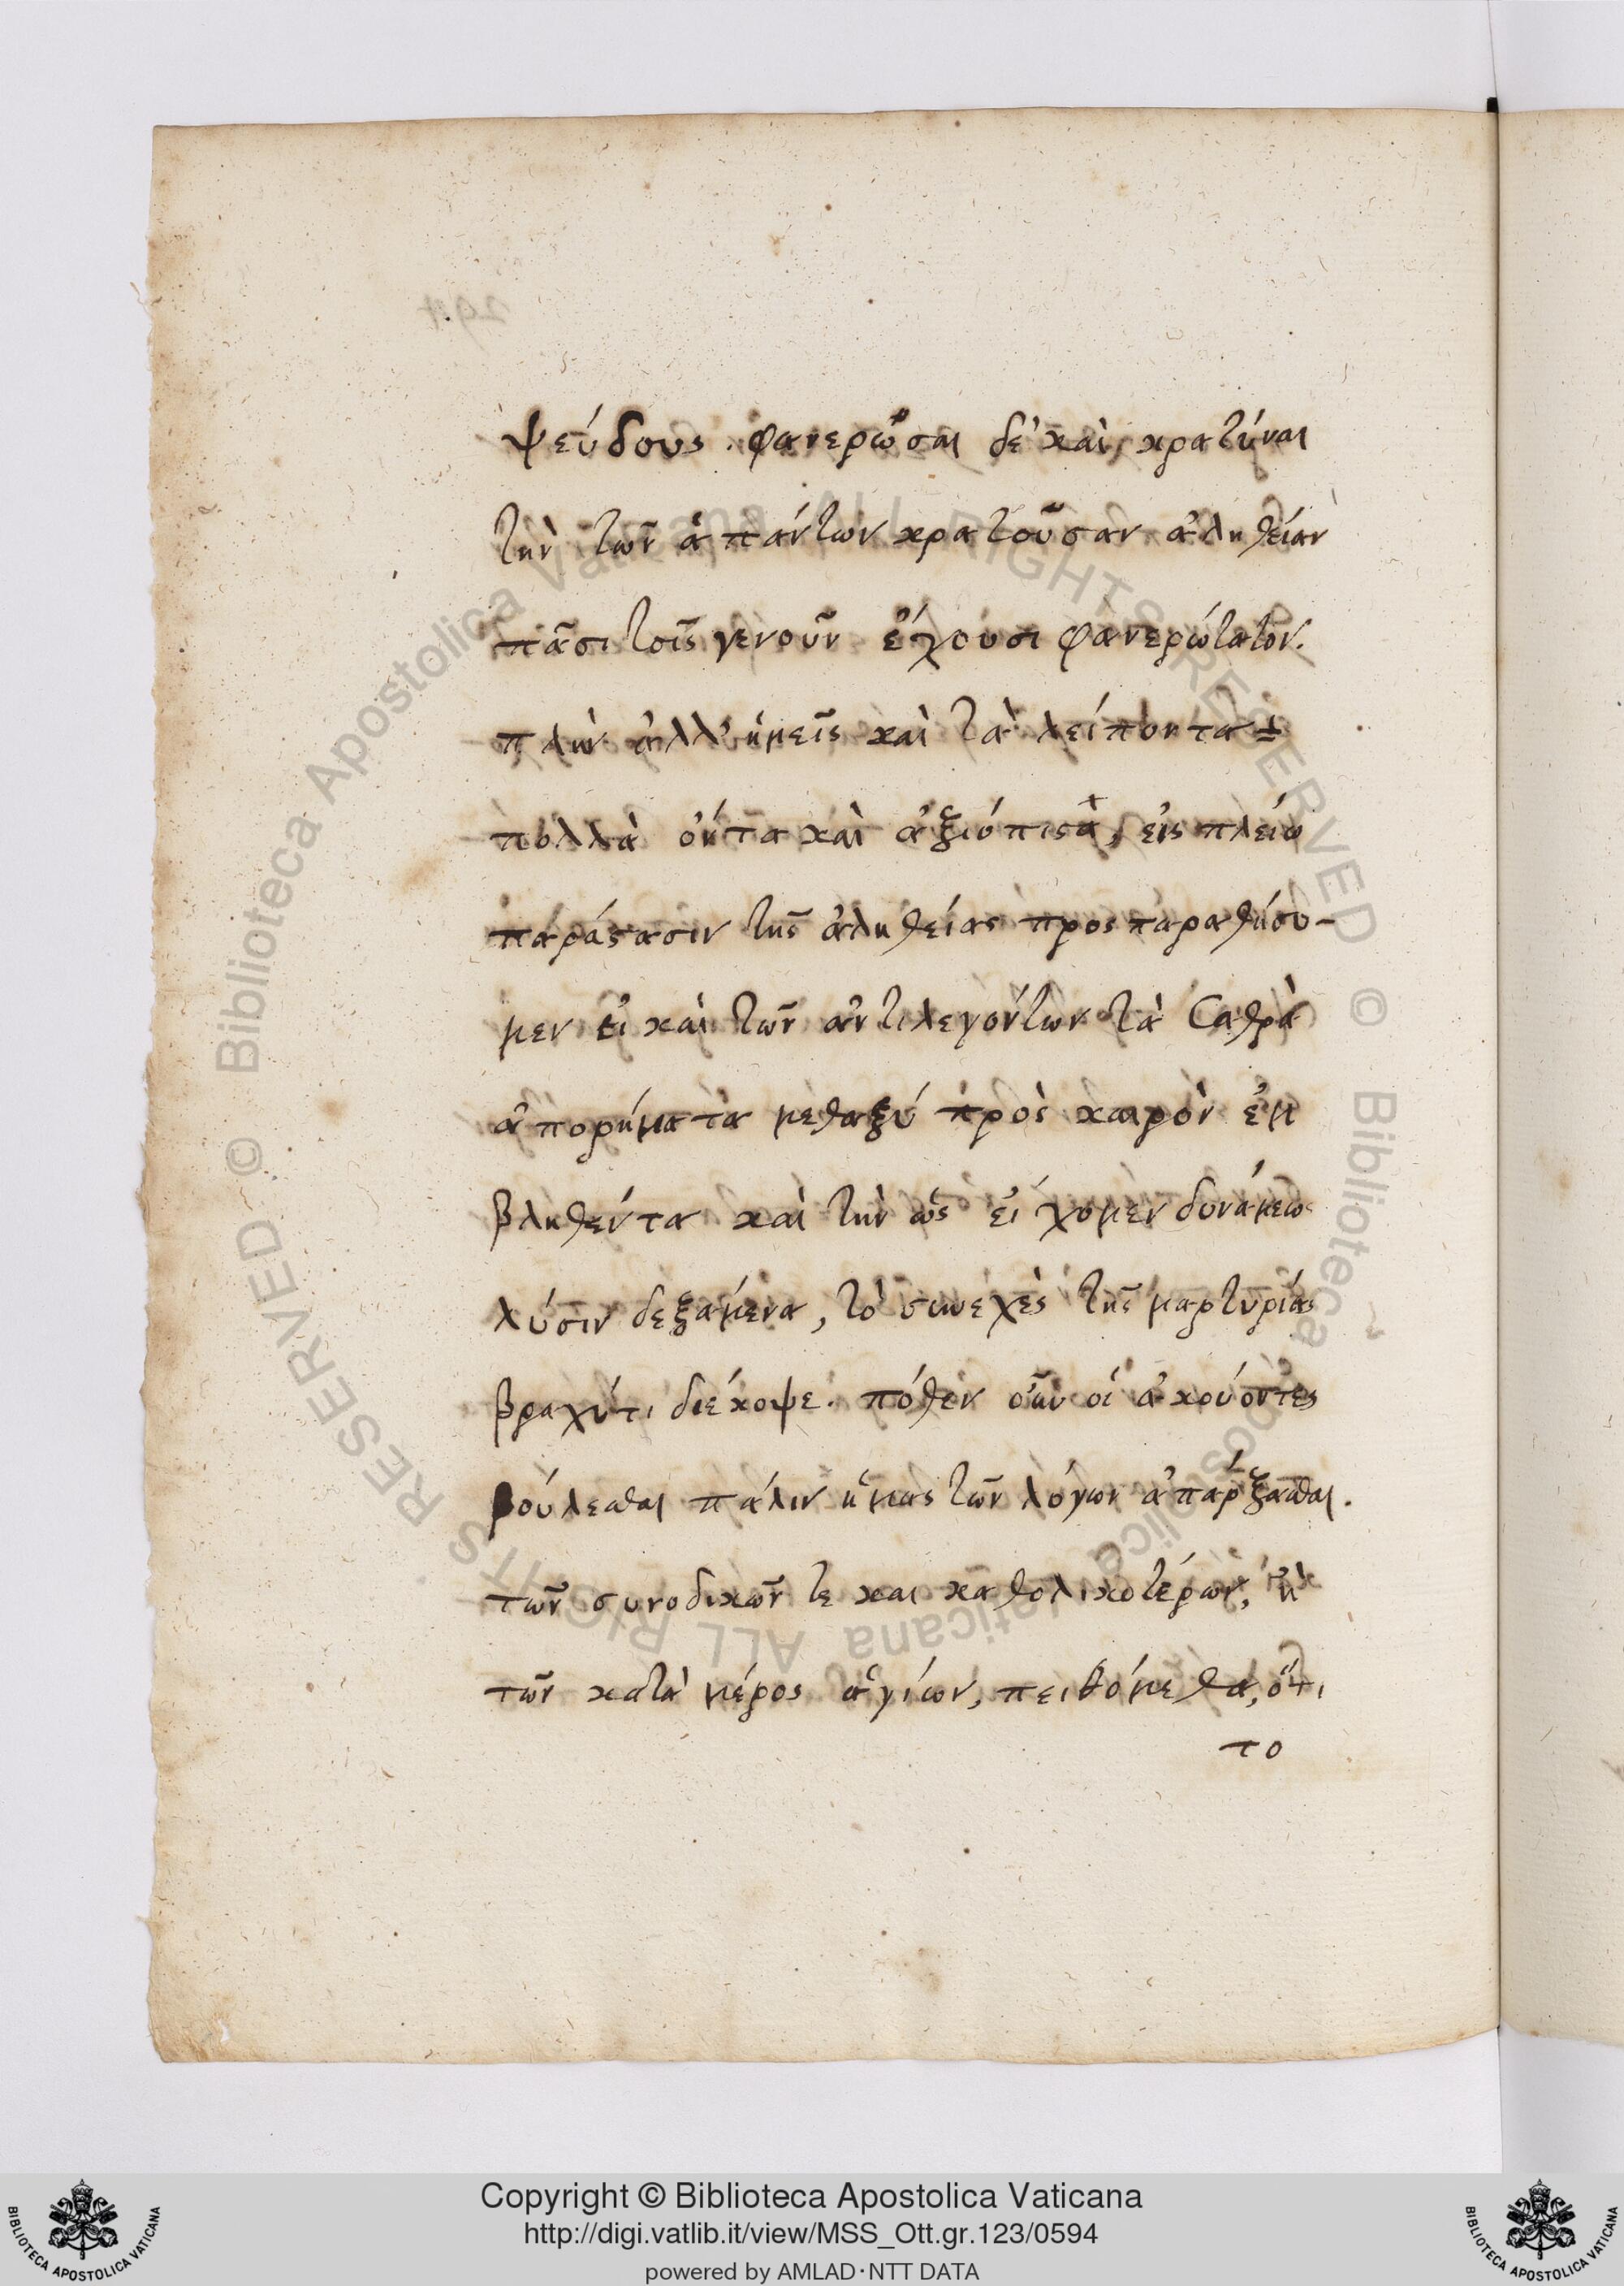 ψεύδους. φανερῶσαι δὲ καὶ κρατύναι
τὴν τῶν ἁπάντων κρατοῦσαν ἀληθείαν
πᾶσι τοῖς γενοῦν ἔχουσι φανερώτατον.
πλὴν ἀλλ' ἡμεῖς καὶ τὰ λείποντα
πολλὰ ὄντα καὶ ἀξιόπιστα, εἰς πλείω
παράστασιν τῆς ἀληθείας προς παραθήσο-
μεν εἰ καὶ τῶν ἀντιλεγόντων τὰ σαθρὰ
ἀπορήματα μεταξύ πρὸς καιρὸν ἐμ
βληθέντα καὶ τὴν ὡς εἴχομεν δυνάμεως
λύσιν δεξαμένα, τὸ συνεχὲς τῆς μαρτυρίας
βραχύ τι διέκοψε. πόθεν οὖν οἱ ἀκούοντες
βούλεσθαι πάλιν ἡμας τῶν λόγων ἀπάρξασθαι.
τῶν συνοδικῶν τε και καθολικοτέρων, ἢ
τῶν κατὰ μέρος ἁγίων, πειθόμεθα, ὅτι
το
Copyright © Biblioteca Apostolica Vaticana
http://digi.vatlib.it/view/MSS_Ott.gr.123/0594
powered by AMLAD·NTT DATA
BIBLIOTECA APOSTOLICA VATICANA
BIBLIOTECA APOSTOLICA VATICANA